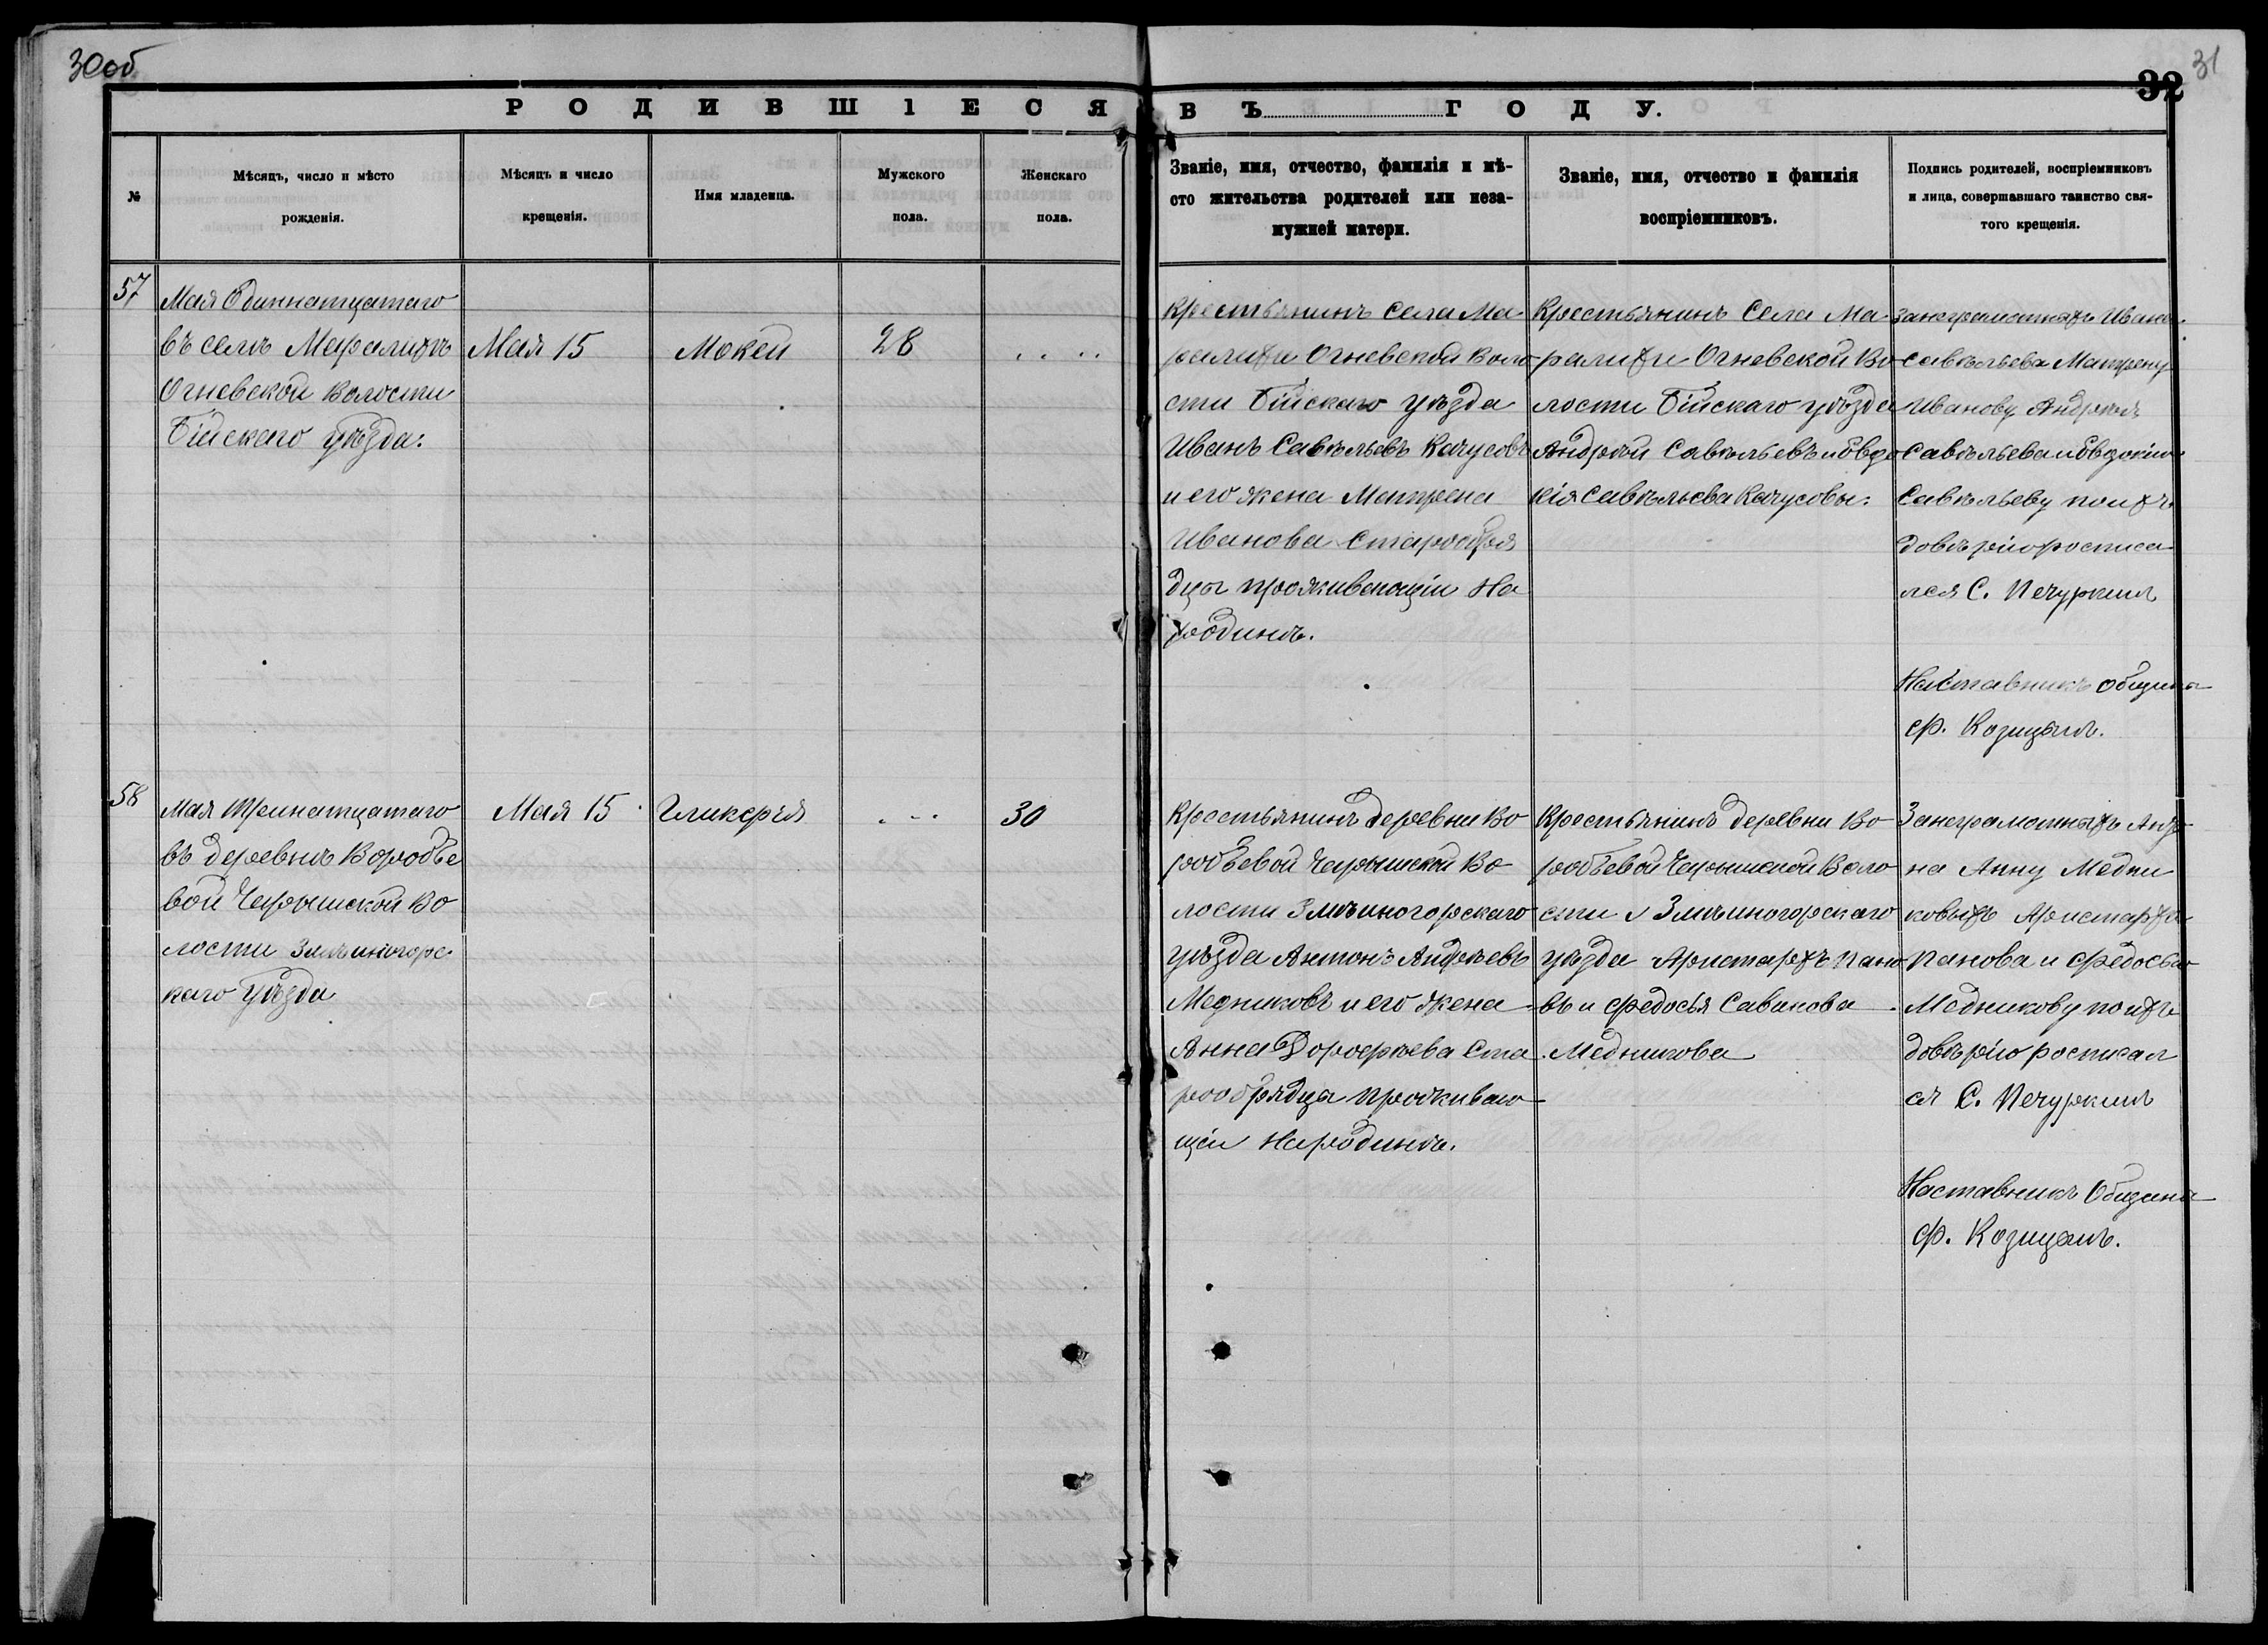 30об
31
32
РОДИВШІЕСЯ ВЪ ГОДУ.
№
Мѣсяцъ, число и мѣсто
рожденія.
Мѣсяцъ и число
крещенія.
Имя младенца.
Мужского
пола.
Женскаго
пола.
Званіе, имя, отчество, фамилія и мѣ-
сто жительства родителей или неза-
мужней матери.
Званіе, имя, отчество и фамилія
воспріемниковъ.
Подпись родителей, воспріемниковъ
и лица, совершавшаго таинство свя-
того крещенія.
57
Мая Одиннатцатаго
въ селѣ Маралихѣ
Огневской Волости
Бійскаго уѣзда.
Мая 15
Мокей
28
Крестьянинъ Села Ма-
ралихи Огневской Воло-
сти Бійскаго уѣзда
Иванъ Савельевъ Качусовъ
и его жена Матрена
Иванова Старообря
дцы проживающіи На
родинѣ.
Крестьянинъ Села Ма-
ралихи Огневской Во
лости Бійскаго уѣзда
Андрѣй Савѣльевъ и Евдо
кія Савѣльева Качусовы.
За неграмотныхъ Ивана
Савѣльева Матрену
Иванову Андрѣя
Савѣльева и Евдокію
Савѣльеву по ихъ
довѣрію росписа
лся С. Печуркинъ
Наставникъ община
Ф. Козицынъ.
58
Мая Тринатцатаго
въ деревнѣ Воробье
вой Чарышской Во
лости Змѣиногорс
каго Уѣзда
Мая 15
Гликерія
30
Крестьянинъ деревни Во
робьевой Чарышской Во
лости Змѣиногорскаго
уѣзда Антонъ Андрѣевъ
Медниковъ и его жена
Анна Дорофѣева Ста
рообрядцы проживаю
щіи На родинѣ.
Крестьянинъ деревни Во
робьевой Чарышской Воло
сти Змѣиногорскаго
уѣзда Аристархъ Пано
въ и Федосья Саванова
Медникова
За неграмотныхъ Анто
на Анну Медни
ковыхъ Аристарха
Панова и Федосью
Медникову по ихъ
довѣрію росписал
ся С. Печуркинъ
Наставникъ Община
Ф. Козицынъ.